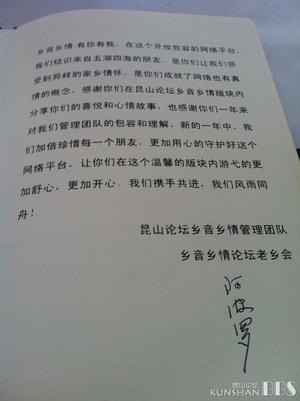 乡音乡情 有你有我，在这个开放包容的网络平台，
我们结识来自五湖四海的朋友，是你们让我们感
受到异样的家乡情怀，是你们成就了网络也有真
情的概念，感谢你们在昆山论坛乡音乡情版块内
分享你们的喜悦和心情故事，也感谢你们一年来
对我们管理团队的包容和理解，新的一年中，我
们加倍珍惜每一个朋友，更加用心的守护好这个
网络平台，让你们在这个温馨的版块内游弋的更
加舒心，更加开心。我们携手共进，我们风雨同
舟！
昆山论坛乡音乡情管理团队
乡音乡情论坛老乡会
阿波罗
昆山论坛
KUNSHAN BBS